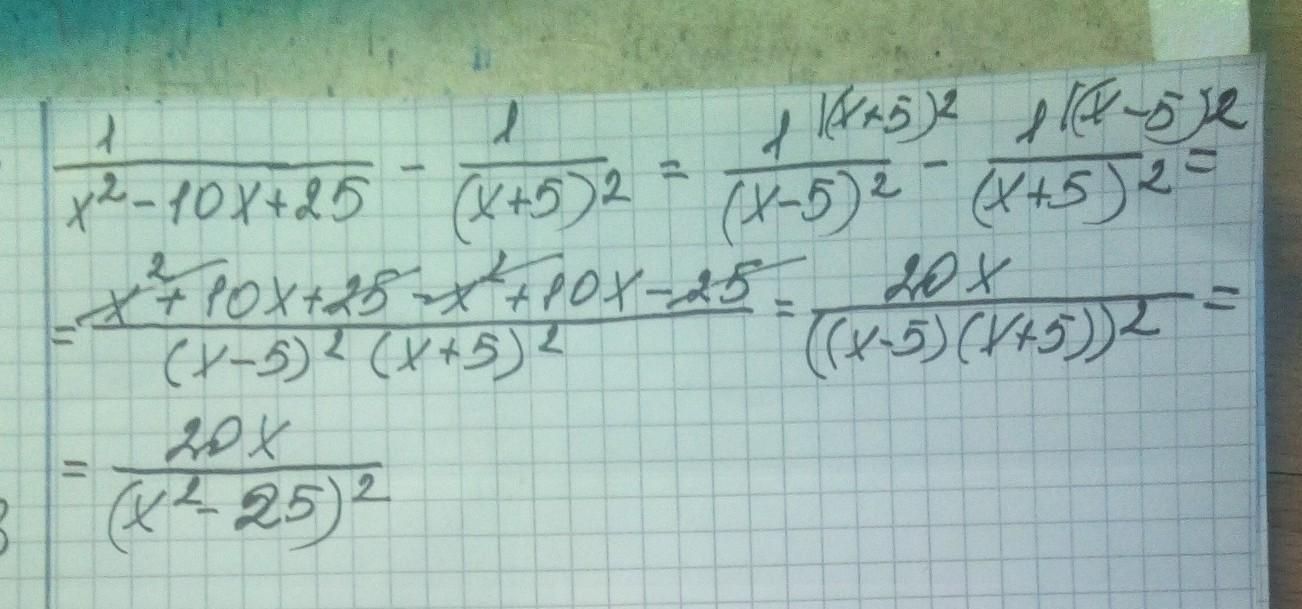 1/(x²-10x+25) - 1/(x+5)² = 1|(x+5)²/(x-5)² - 1|(x-5)²/(x+5)² =
= (x²+10x+25-x²+10x-25)/((x-5)²(x+5)²) = 20x/((x-5)(x+5))² =
= 20x/(x²-25)²